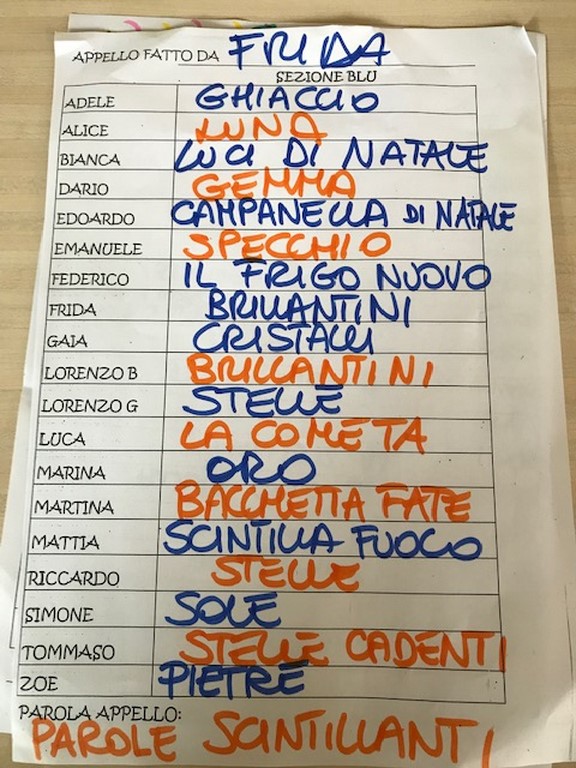 APPELLO FATTO DA FRIDA
SEZIONE BLU
ADELE GHIACCIO
ALICE LUNA
BIANCA LUCI DI NATALE
DARIO GEMMA
EDOARDO CAMPANELLA DI NATALE
EMANUELE SPECCHIO
FEDERICO IL FRIGO NUOVO
FRIDA BRILLANTINI
GAIA CRISTALLI
LORENZO B BRILLANTINI
LORENZO G STELLE
LUCA LA COMETA
MARINA ORO
MARTINA BACCHETTA FATE
MATTIA SCINTILLA FUOCO
RICCARDO STELLE
SIMONE SOLE
TOMMASO STELLE CADENTI
ZOE PIETRE
PAROLA APPELLO:
PAROLE SCINTILLANTI